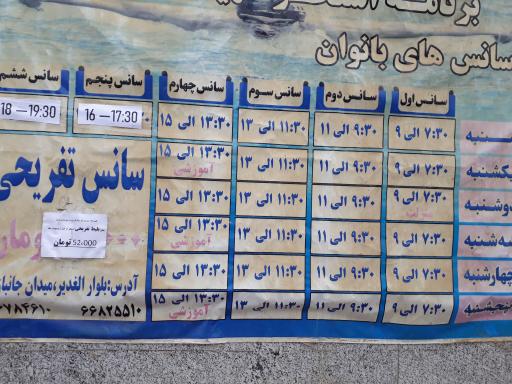 سانس های بانوان
سانس اول سانس دوم سانس سوم سانس چهارم سانس پنجم سانس ششم
۷:۳۰ الی ۹ ۹:۳۰ الی ۱۱ ۱۱:۳۰ الی ۱۳ ۱۳:۳۰ الی ۱۵ 16 – 17:30 18 – 19:30
یکشنبه ۷:۳۰ الی ۹ ۹:۳۰ الی ۱۱ ۱۱:۳۰ الی ۱۳ ۱۳:۳۰ الی ۱۵ آموزشی
دوشنبه ۷:۳۰ الی ۹ ۹:۳۰ الی ۱۱ ۱۱:۳۰ الی ۱۳ ۱۳:۳۰ الی ۱۵
سه‌شنبه ۷:۳۰ الی ۹ ۹:۳۰ الی ۱۱ ۱۱:۳۰ الی ۱۳ ۱۳:۳۰ الی ۱۵ آموزشی
چهارشنبه ۷:۳۰ الی ۹ ۹:۳۰ الی ۱۱ ۱۱:۳۰ الی ۱۳ ۱۳:۳۰ الی ۱۵
پنجشنبه ۷:۳۰ الی ۹ ۹:۳۰ الی ۱۱ ۱۱:۳۰ الی ۱۳ ۱۳:۳۰ الی ۱۵ آموزشی
سانس تفریحی
52،000 تومان
آدرس:بلوار الغدیر،میدان جانباز
۶۶۸۲۵۵۱۰